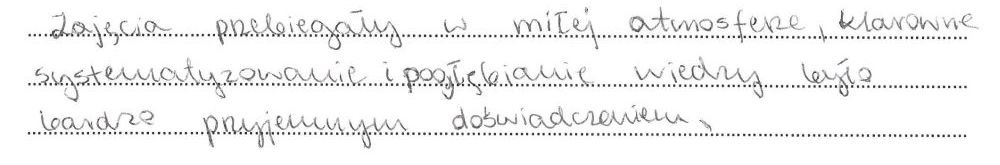 Zajęcia przebiegały w miłej atmosferze, klarowne
systematyzowanie i pogłębianie wiedzy było
bardzo przyjemnym doświadczeniem.